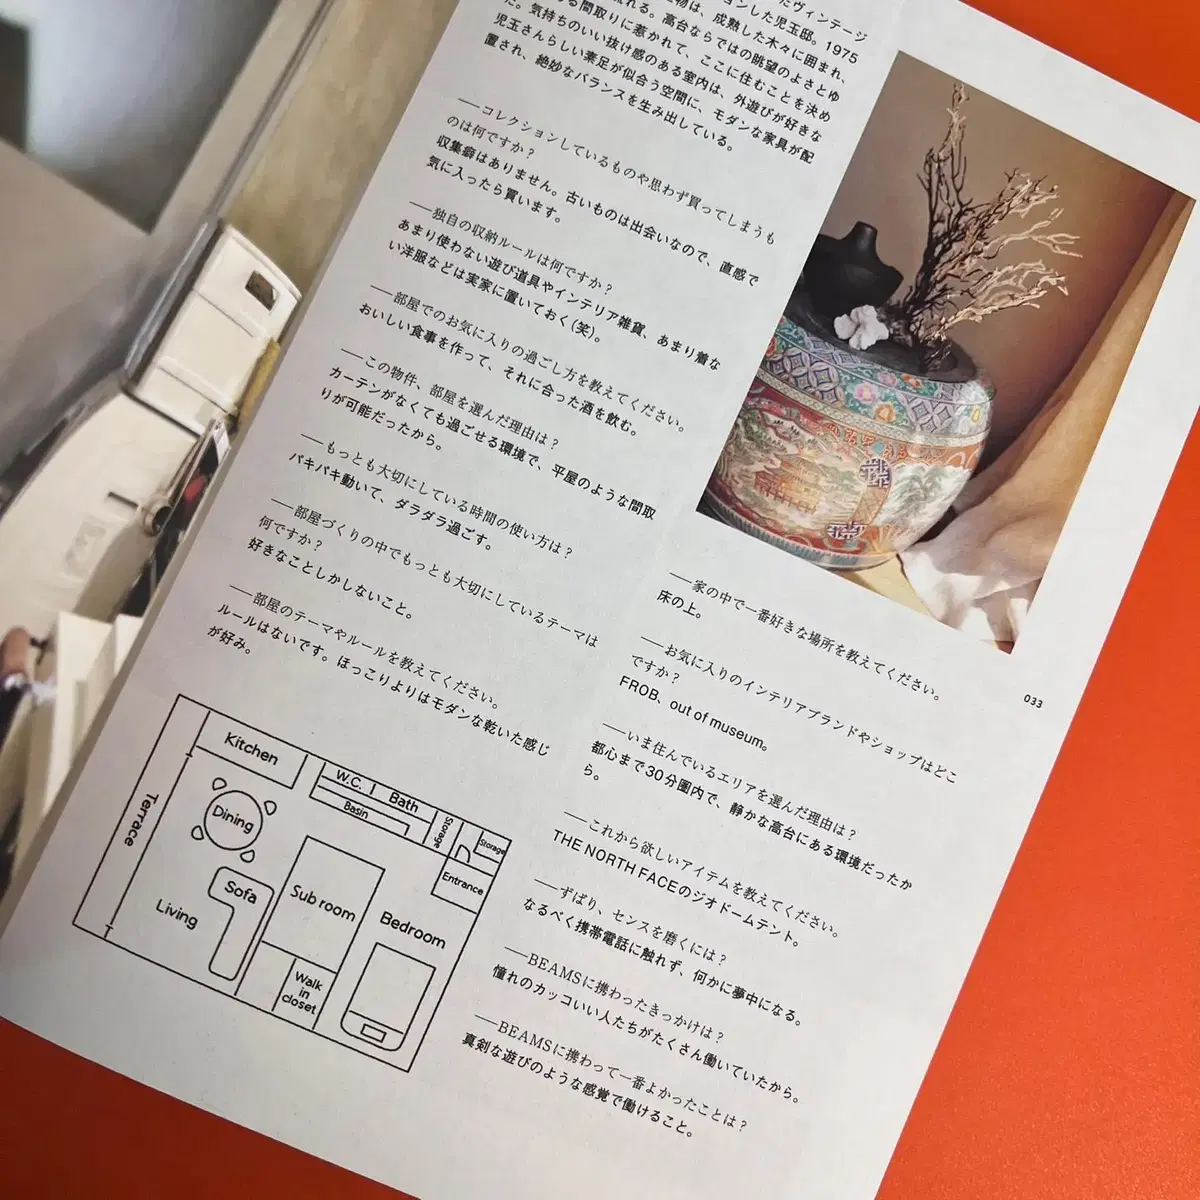 たヴィンテージ
ションした児玉邸。1975
物は、成熟した木々に囲まれ、
れる。高台ならではの眺望のよさとゆ
る間取りに惹かれて、ここに住むことを決め
た。気持ちのいい抜け感のある室内は、外遊びが好きな
児玉さんらしい素足が似合う空間に、モダンな家具が配
置され、絶妙なバランスを生み出している。
──コレクションしているものや思わず買ってしまうも
のは何ですか？
収集癖はありません。古いものは出会いなので、直感で
気に入ったら買います。
──独自の収納ルールは何ですか？
あまり使わない遊び道具やインテリア雑貨、あまり着な
い洋服などは実家に置いておく(笑)。
──部屋でのお気に入りの過ごし方を教えてください。
おいしい食事を作って、それに合った酒を飲む。
──この物件、部屋を選んだ理由は？
カーテンがなくても過ごせる環境で、平屋のような間取
りが可能だったから。
──もっとも大切にしている時間の使い方は？
バキバキ動いて、ダラダラ過ごす。
──部屋づくりの中でもっとも大切にしているテーマは
何ですか？
好きなことしかしないこと。
──部屋のテーマやルールを教えてください。
ルールはないです。ほっこりよりはモダンな乾いた感じ
が好み。
Kitchen
W.C.
Bath
Basin
Storage
Storage
Entrance
Terrace
Dining
Sofa
Living
Sub room
Bedroom
Walk
in
closet
──家の中で一番好きな場所を教えてください。
床の上。
──お気に入りのインテリアブランドやショップはどこ
ですか？
FROB、out of museum。
──いま住んでいるエリアを選んだ理由は？
都心まで30分圏内で、静かな高台にある環境だったか
ら。
──これから欲しいアイテムを教えてください。
THE NORTH FACEのジオドームテント。
──ずばり、センスを磨くには？
なるべく携帯電話に触れず、何かに夢中になる。
──BEAMSに携わったきっかけは？
憧れのカッコいい人たちがたくさん働いていたから。
──BEAMSに携わって一番よかったことは？
真剣な遊びのような感覚で働けること。
033